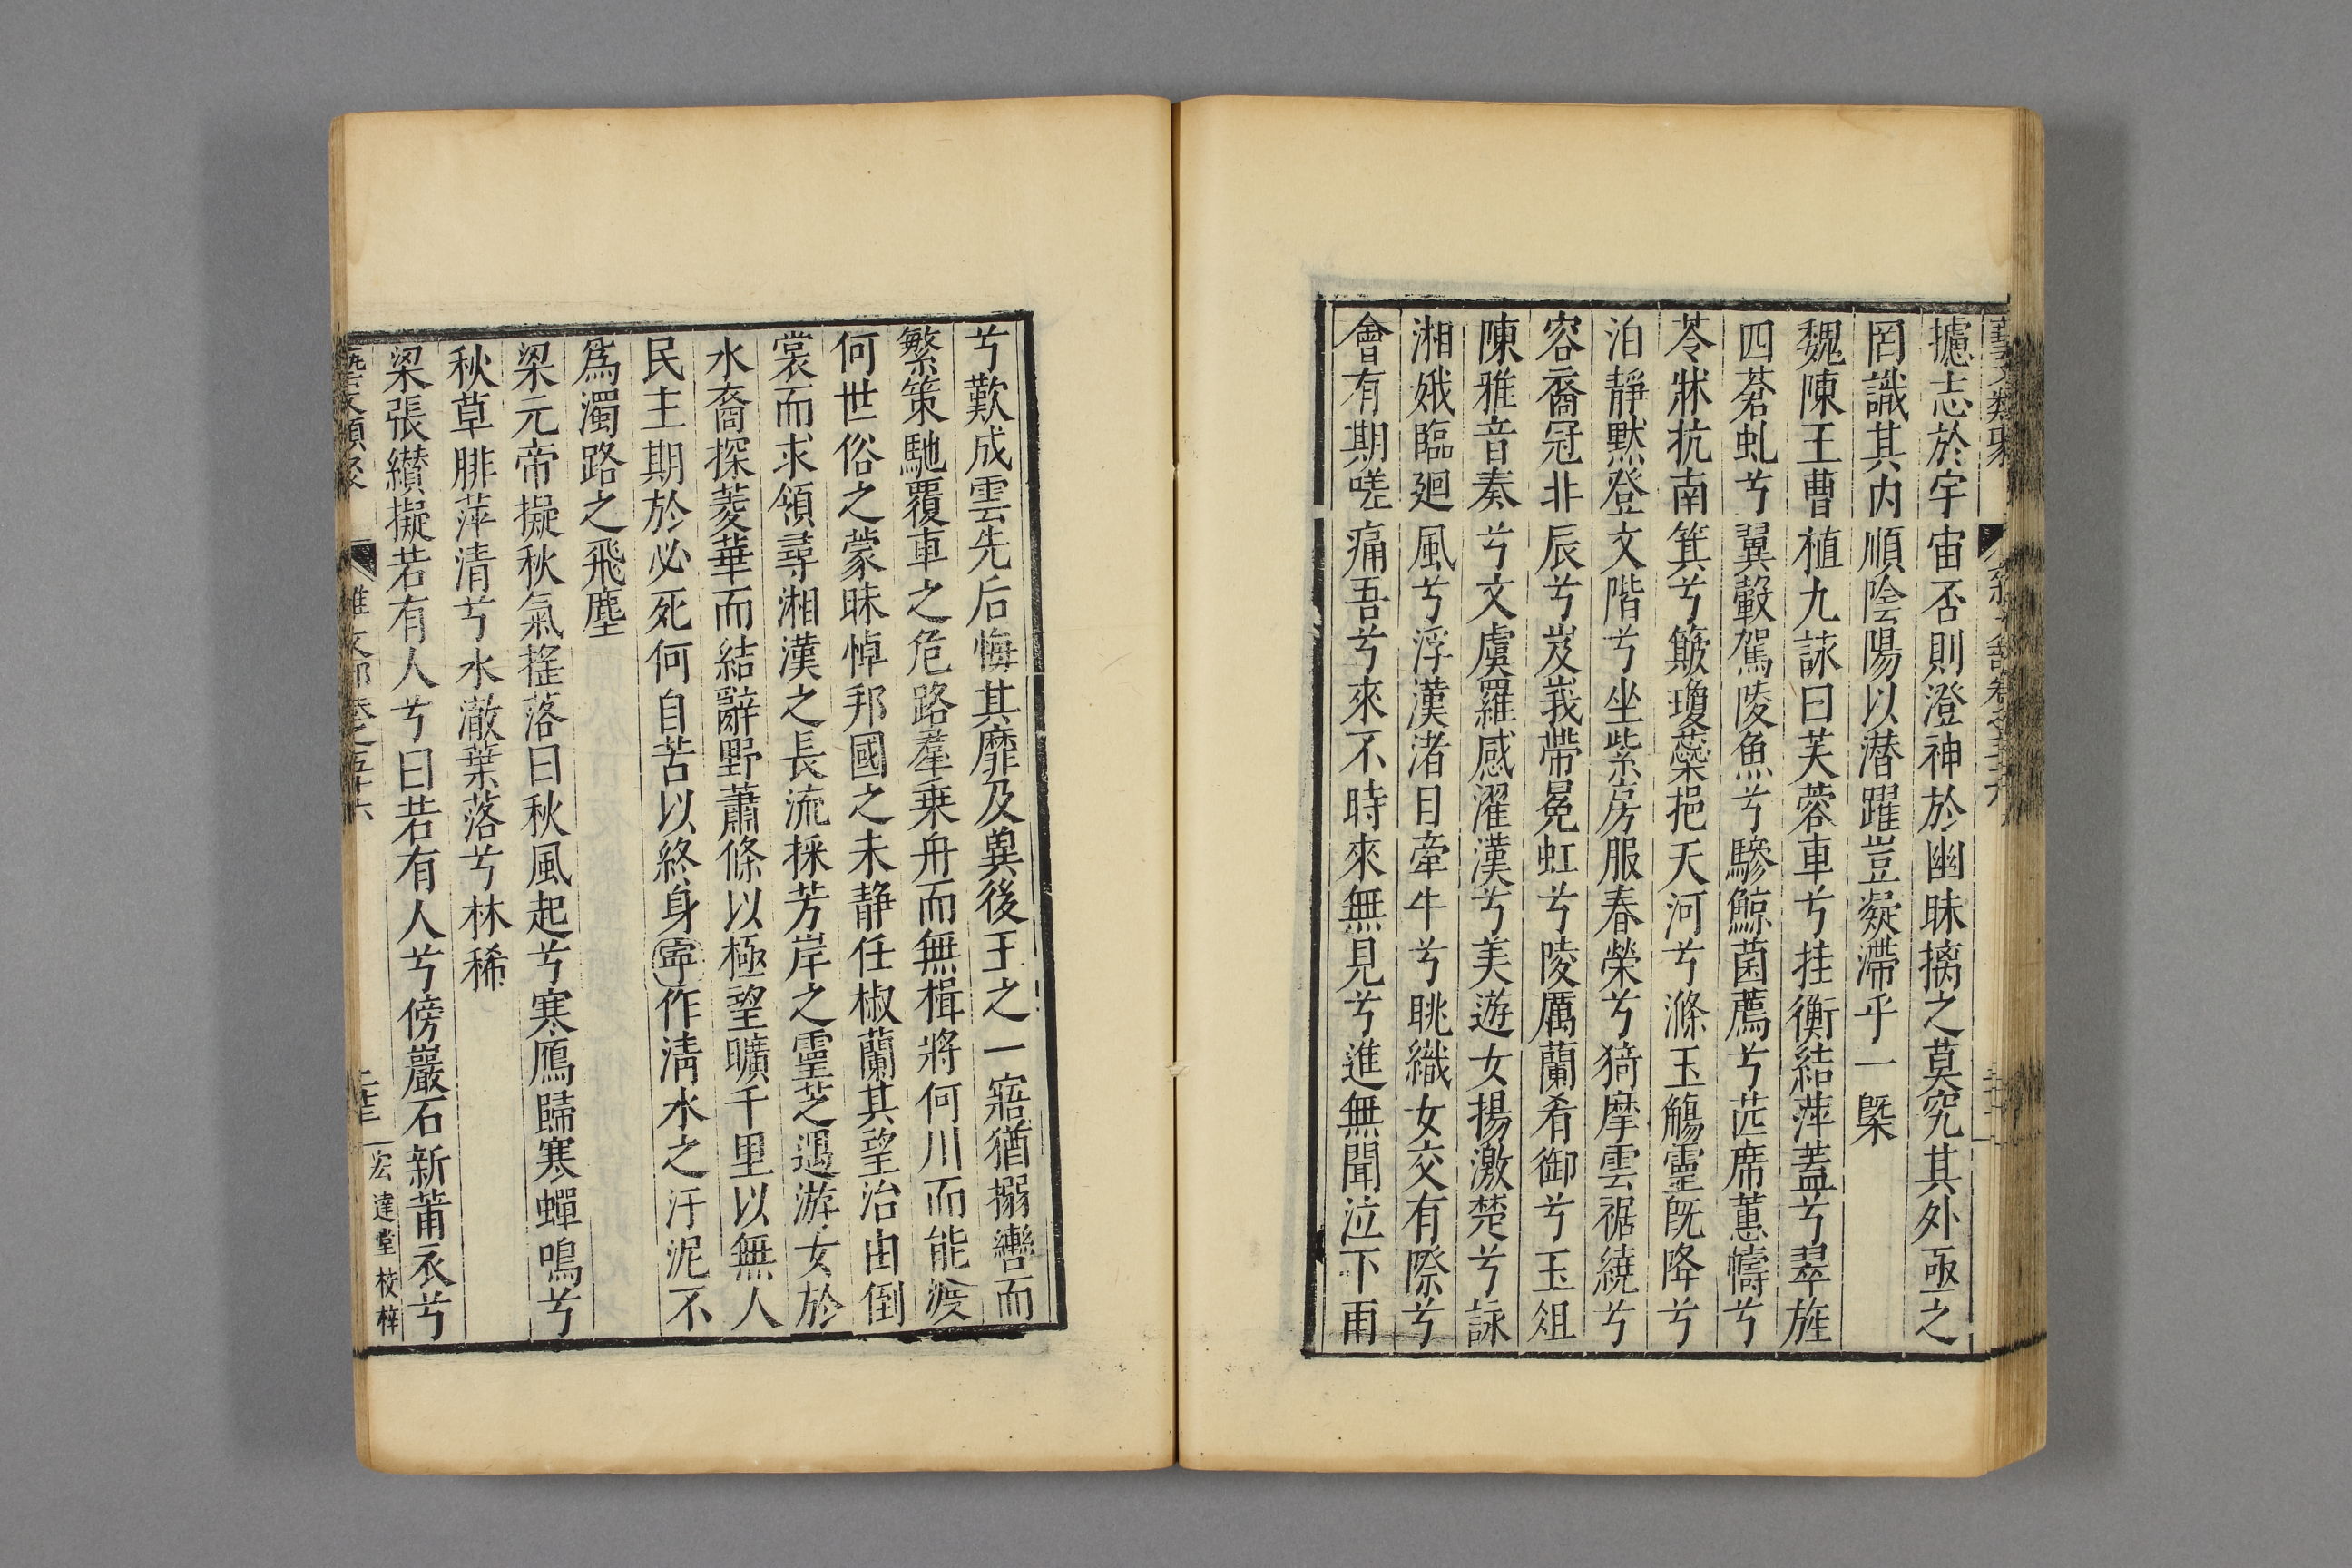 攄志於宇宙否則澄神於幽昧摛之莫究其外亟之
罔識其內順陰陽以潛躍豈凝滯乎一槩
魏陳王曹植九詠曰芙蓉車兮挂衡結萍蓋兮翠旌
四蒼虬兮翼轂駕陵魚兮驂鯨菌薦兮茝席蕙幬兮
苓牀抗南箕兮簸瓊蘂挹天河兮滌玉觴靈旣降兮
泊靜默登文階兮坐紫房服春榮兮猗摩雲裾繞兮
容裔冠北辰兮岌峩帶冕虹兮陵厲蘭肴御兮玉俎
陳雅音奏兮文虞羅感濯漢兮美遊女揚激楚兮詠
湘娥臨廻風兮浮漢渚目牽牛兮眺織女交有際兮
會有期嗟痛吾兮來不時來無見兮進無聞泣下雨
兮歎成雲先后悔其靡及兾後王之一寤猶搦轡而
繁策馳覆車之危路羣乗舟而無楫將何川而能渡
何世俗之蒙昧悼邦國之未静任椒蘭其望治由倒
裳而求領尋湘漢之長流採芳岸之靈芝遇游女於
水裔探菱華而結辭野蕭條以極望曠千里以無人
民主期於必死何自苦以終身寧作清水之汙泥不
爲濁路之飛塵
梁元帝擬秋氣摇落曰秋風起兮寒鴈歸寒蟬鳴兮
秋草腓萍清兮水澈葉落兮林稀
梁張纉擬若有人兮曰若有人兮傍巖石新莆衣兮
藝文類聚
雜文部卷之五十六
宏達堂校梓